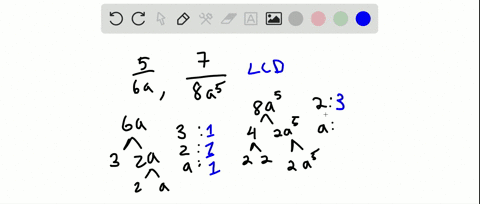 5/6a, 7/8a⁵ LCD
6a
3 2a
2 a
3 : 1
2 : 1
a : 1
8a⁵
4 2a⁵
2 2 2 a⁵
2 : 3
a :